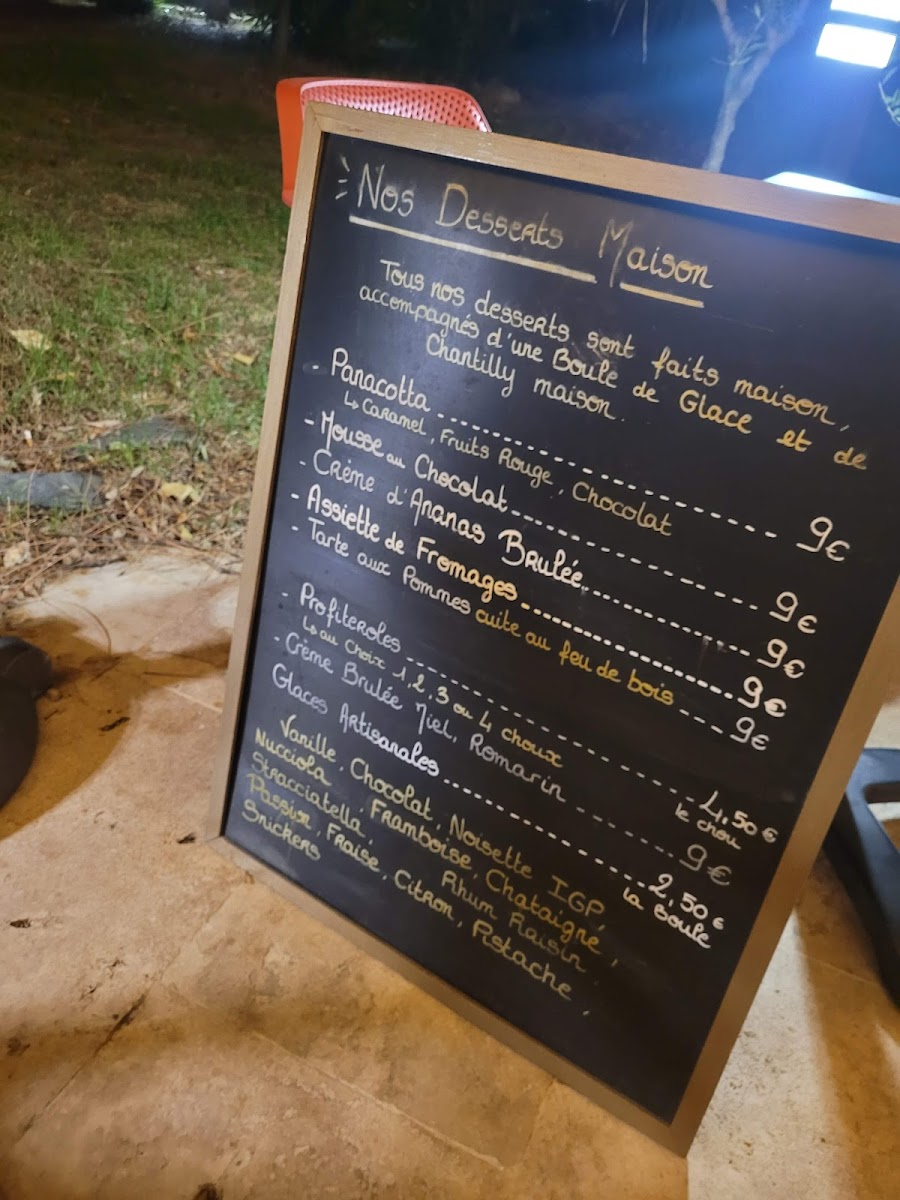 Nos Desserts Maison
Tous nos desserts sont faits maison,
accompagnés d'une Boule de Glace et de
Chantilly maison.
- Panacotta 9€
↳ Caramel, Fruits Rouge, Chocolat
- Mousse au Chocolat 9€
- Crème d'Ananas Brulée 9€
- Assiette de Fromages 9€
- Tarte aux Pommes cuite au feu de bois 9€
- Profiteroles 4,50€
↳ au choix 1, 2, 3 ou 4 choux le chou
- Crème Brulée Miel, Romarin 9€
Glaces Artisanales 2,50€
la Boule
Vanille, Chocolat, Noisette IGP,
Nucciola, Framboise, Chataigne,
Stracciatella, Rhum Raisin,
Passion, Fraise, Citron, Pistache,
Snickers